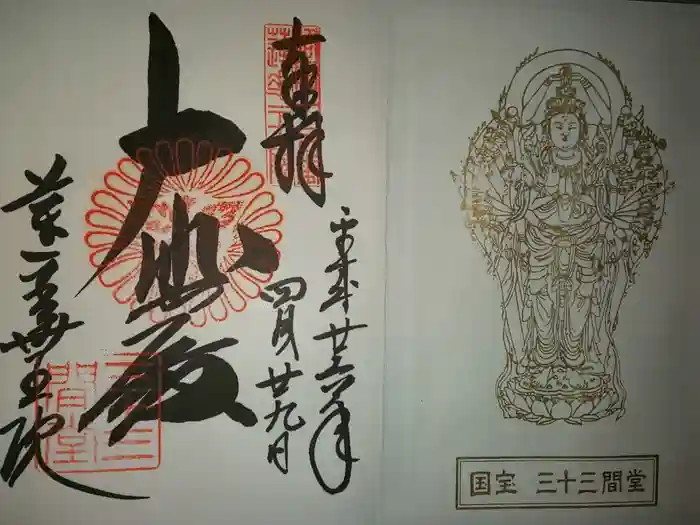 奉拝
平成廿六年
四月廿九日
大悲殿
蓮華王院
三十三
間堂
国宝 三十三間堂